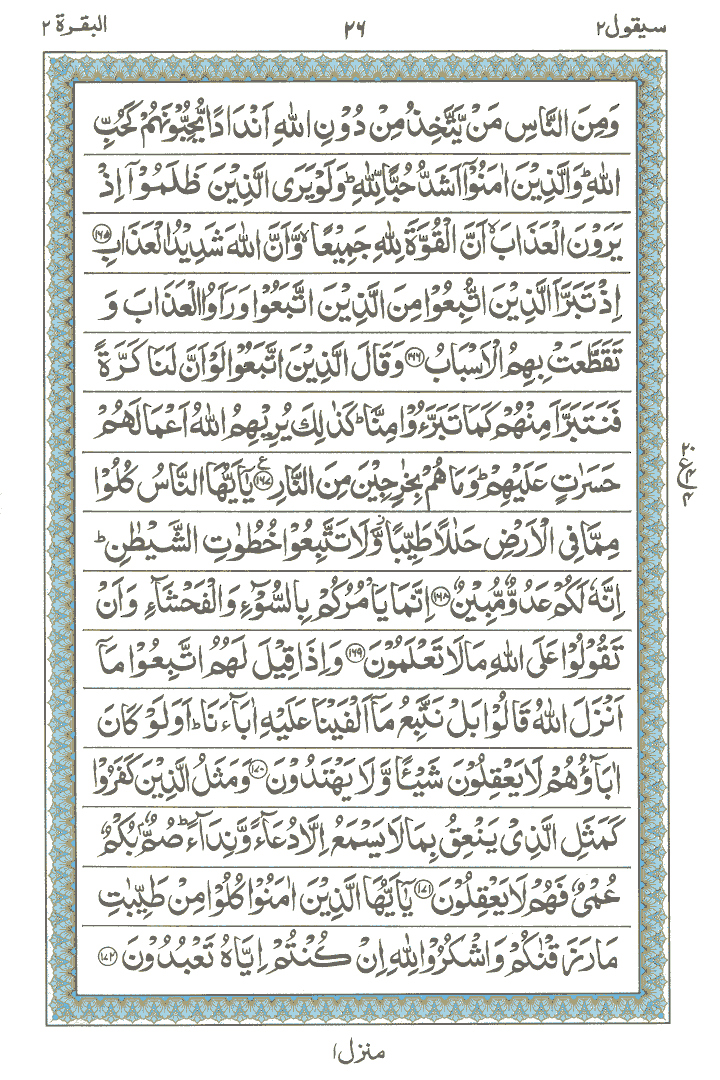 سيقول٢ ٢٦ البقرة ٢
وَمِنَ النَّاسِ مَنْ يَّتَّخِذُ مِنْ دُوْنِ اللّٰهِ اَنْدَادًا يُّحِبُّوْنَهُمْ كَحُبِّ
اللّٰهِ ؕ وَالَّذِيْنَ اٰمَنُوْۤا اَشَدُّ حُبًّا لِّلّٰهِ ؕ وَلَوْ يَرَى الَّذِيْنَ ظَلَمُوْۤا اِذْ
يَرَوْنَ الْعَذَابَ ۙ اَنَّ الْقُوَّةَ لِلّٰهِ جَمِيْعًا ۙ وَّاَنَّ اللّٰهَ شَدِيْدُ الْعَذَابِ ﴿١٦٥﴾
اِذْ تَبَرَّاَ الَّذِيْنَ اتُّبِعُوْا مِنَ الَّذِيْنَ اتَّبَعُوْا وَرَاَوُا الْعَذَابَ وَ
تَقَطَّعَتْ بِهِمُ الْاَسْبَابُ ﴿١٦٦﴾ وَقَالَ الَّذِيْنَ اتَّبَعُوْا لَوْ اَنَّ لَنَا كَرَّةً
فَنَتَبَرَّاَ مِنْهُمْ كَمَا تَبَرَّءُوْا مِنَّا ؕ كَذٰلِكَ يُرِيْهِمُ اللّٰهُ اَعْمَالَهُمْ
حَسَرٰتٍ عَلَيْهِمْ ؕ وَمَا هُمْ بِخٰرِجِيْنَ مِنَ النَّارِ ﴿١٦٧﴾ ع يٰۤاَيُّهَا النَّاسُ كُلُوْا
مِمَّا فِى الْاَرْضِ حَلٰلًا طَيِّبًا ۖ وَّلَا تَتَّبِعُوْا خُطُوٰتِ الشَّيْطٰنِ ؕ
اِنَّهٗ لَكُمْ عَدُوٌّ مُّبِيْنٌ ﴿١٦٨﴾ اِنَّمَا يَاْمُرُكُمْ بِالسُّوْٓءِ وَالْفَحْشَآءِ وَاَنْ
تَقُوْلُوْا عَلَى اللّٰهِ مَا لَا تَعْلَمُوْنَ ﴿١٦٩﴾ وَاِذَا قِيْلَ لَهُمُ اتَّبِعُوْا مَاۤ
اَنْزَلَ اللّٰهُ قَالُوْا بَلْ نَتَّبِعُ مَاۤ اَلْفَيْنَا عَلَيْهِ اٰبَآءَنَا ؕ اَوَلَوْ كَانَ
اٰبَآؤُهُمْ لَا يَعْقِلُوْنَ شَيْـًٔا وَّلَا يَهْتَدُوْنَ ﴿١٧٠﴾ وَمَثَلُ الَّذِيْنَ كَفَرُوْا
كَمَثَلِ الَّذِىْ يَنْعِقُ بِمَا لَا يَسْمَعُ اِلَّا دُعَآءً وَّنِدَآءً ؕ صُمٌّۢ بُكْمٌ
عُمْىٌ فَهُمْ لَا يَعْقِلُوْنَ ﴿١٧١﴾ يٰۤاَيُّهَا الَّذِيْنَ اٰمَنُوْا كُلُوْا مِنْ طَيِّبٰتِ
مَا رَزَقْنٰكُمْ وَاشْكُرُوْا لِلّٰهِ اِنْ كُنْتُمْ اِيَّاهُ تَعْبُدُوْنَ ﴿١٧٢﴾
٢٠ ع ٤ ٤
منزل١